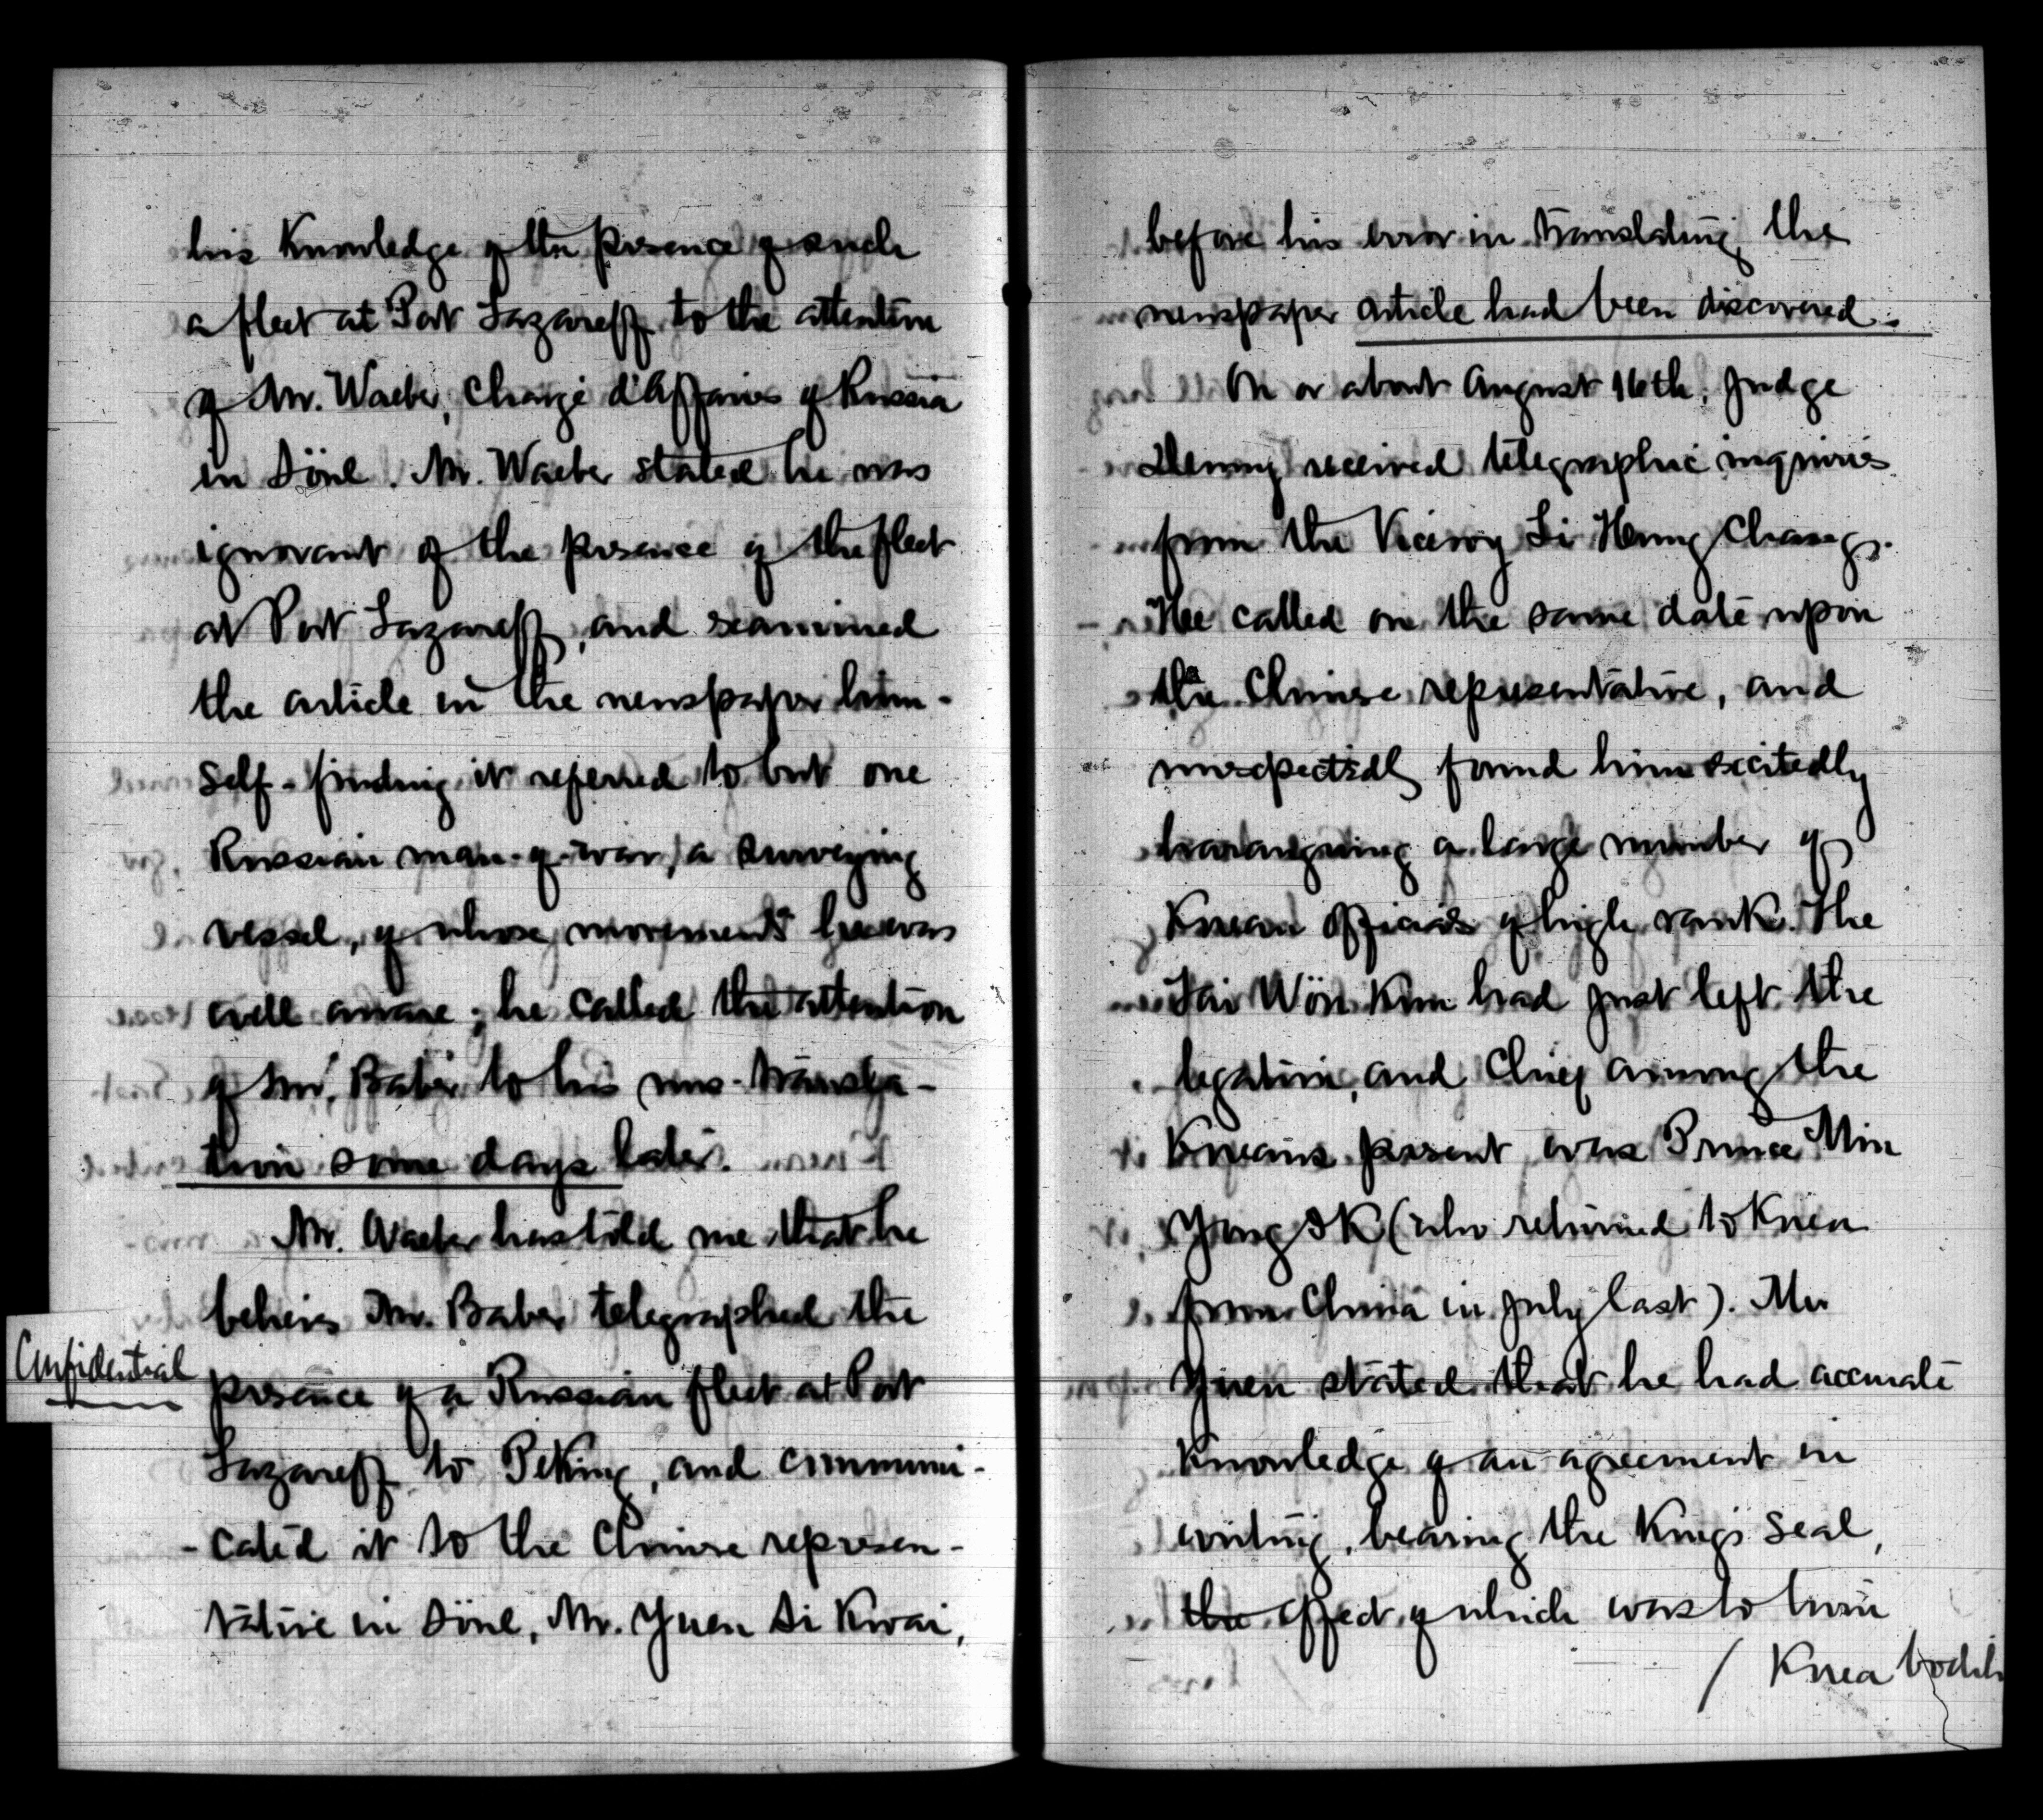 his Knowledge of the presence of such
a fleet at Port Lazareff to the attention
of Mr. Waeber, Chargé d'Affaires of Russia
in Söul. Mr. Waeber stated he was
ignorant of the presence of the fleet
at Port Lazareff, and examined
the article in the newspaper him-
self - finding it referred to but one
Russian man-of-war, a surveying
vessel, of whose movements he was
well aware; he called the attention
of Mr. Baber to his mis-transla-
tion some days later.
Mr. Waeber has told me that he
believes Mr. Baber telegraphed the
Confidential
presence of a Russian fleet at Port
Lazareff to Peking, and communi-
-cated it to the Chinese represen-
tative in Söul, Mr. Yuen Si Kwai,
before his error in translating the
newspaper article had been discovered.
On or about August 16th, Judge
Denny received telegraphic inquiries
from the Viceroy Li Hung Chang.
He called on the same date upon
the Chinese representative, and
unexpectedly found him excitedly
haranguing a large number of
Korean officials of high rank. The
Tai Wön Kun had just left the
legation, and chief among the
Koreans present was Prince Min
Yong Ik (who returned to Korea
from China in July last). Mr.
Yuen stated that he had accurate
Knowledge of an agreement in
writing, bearing the King's seal,
the effect of which was to turn
/ Korea bodily